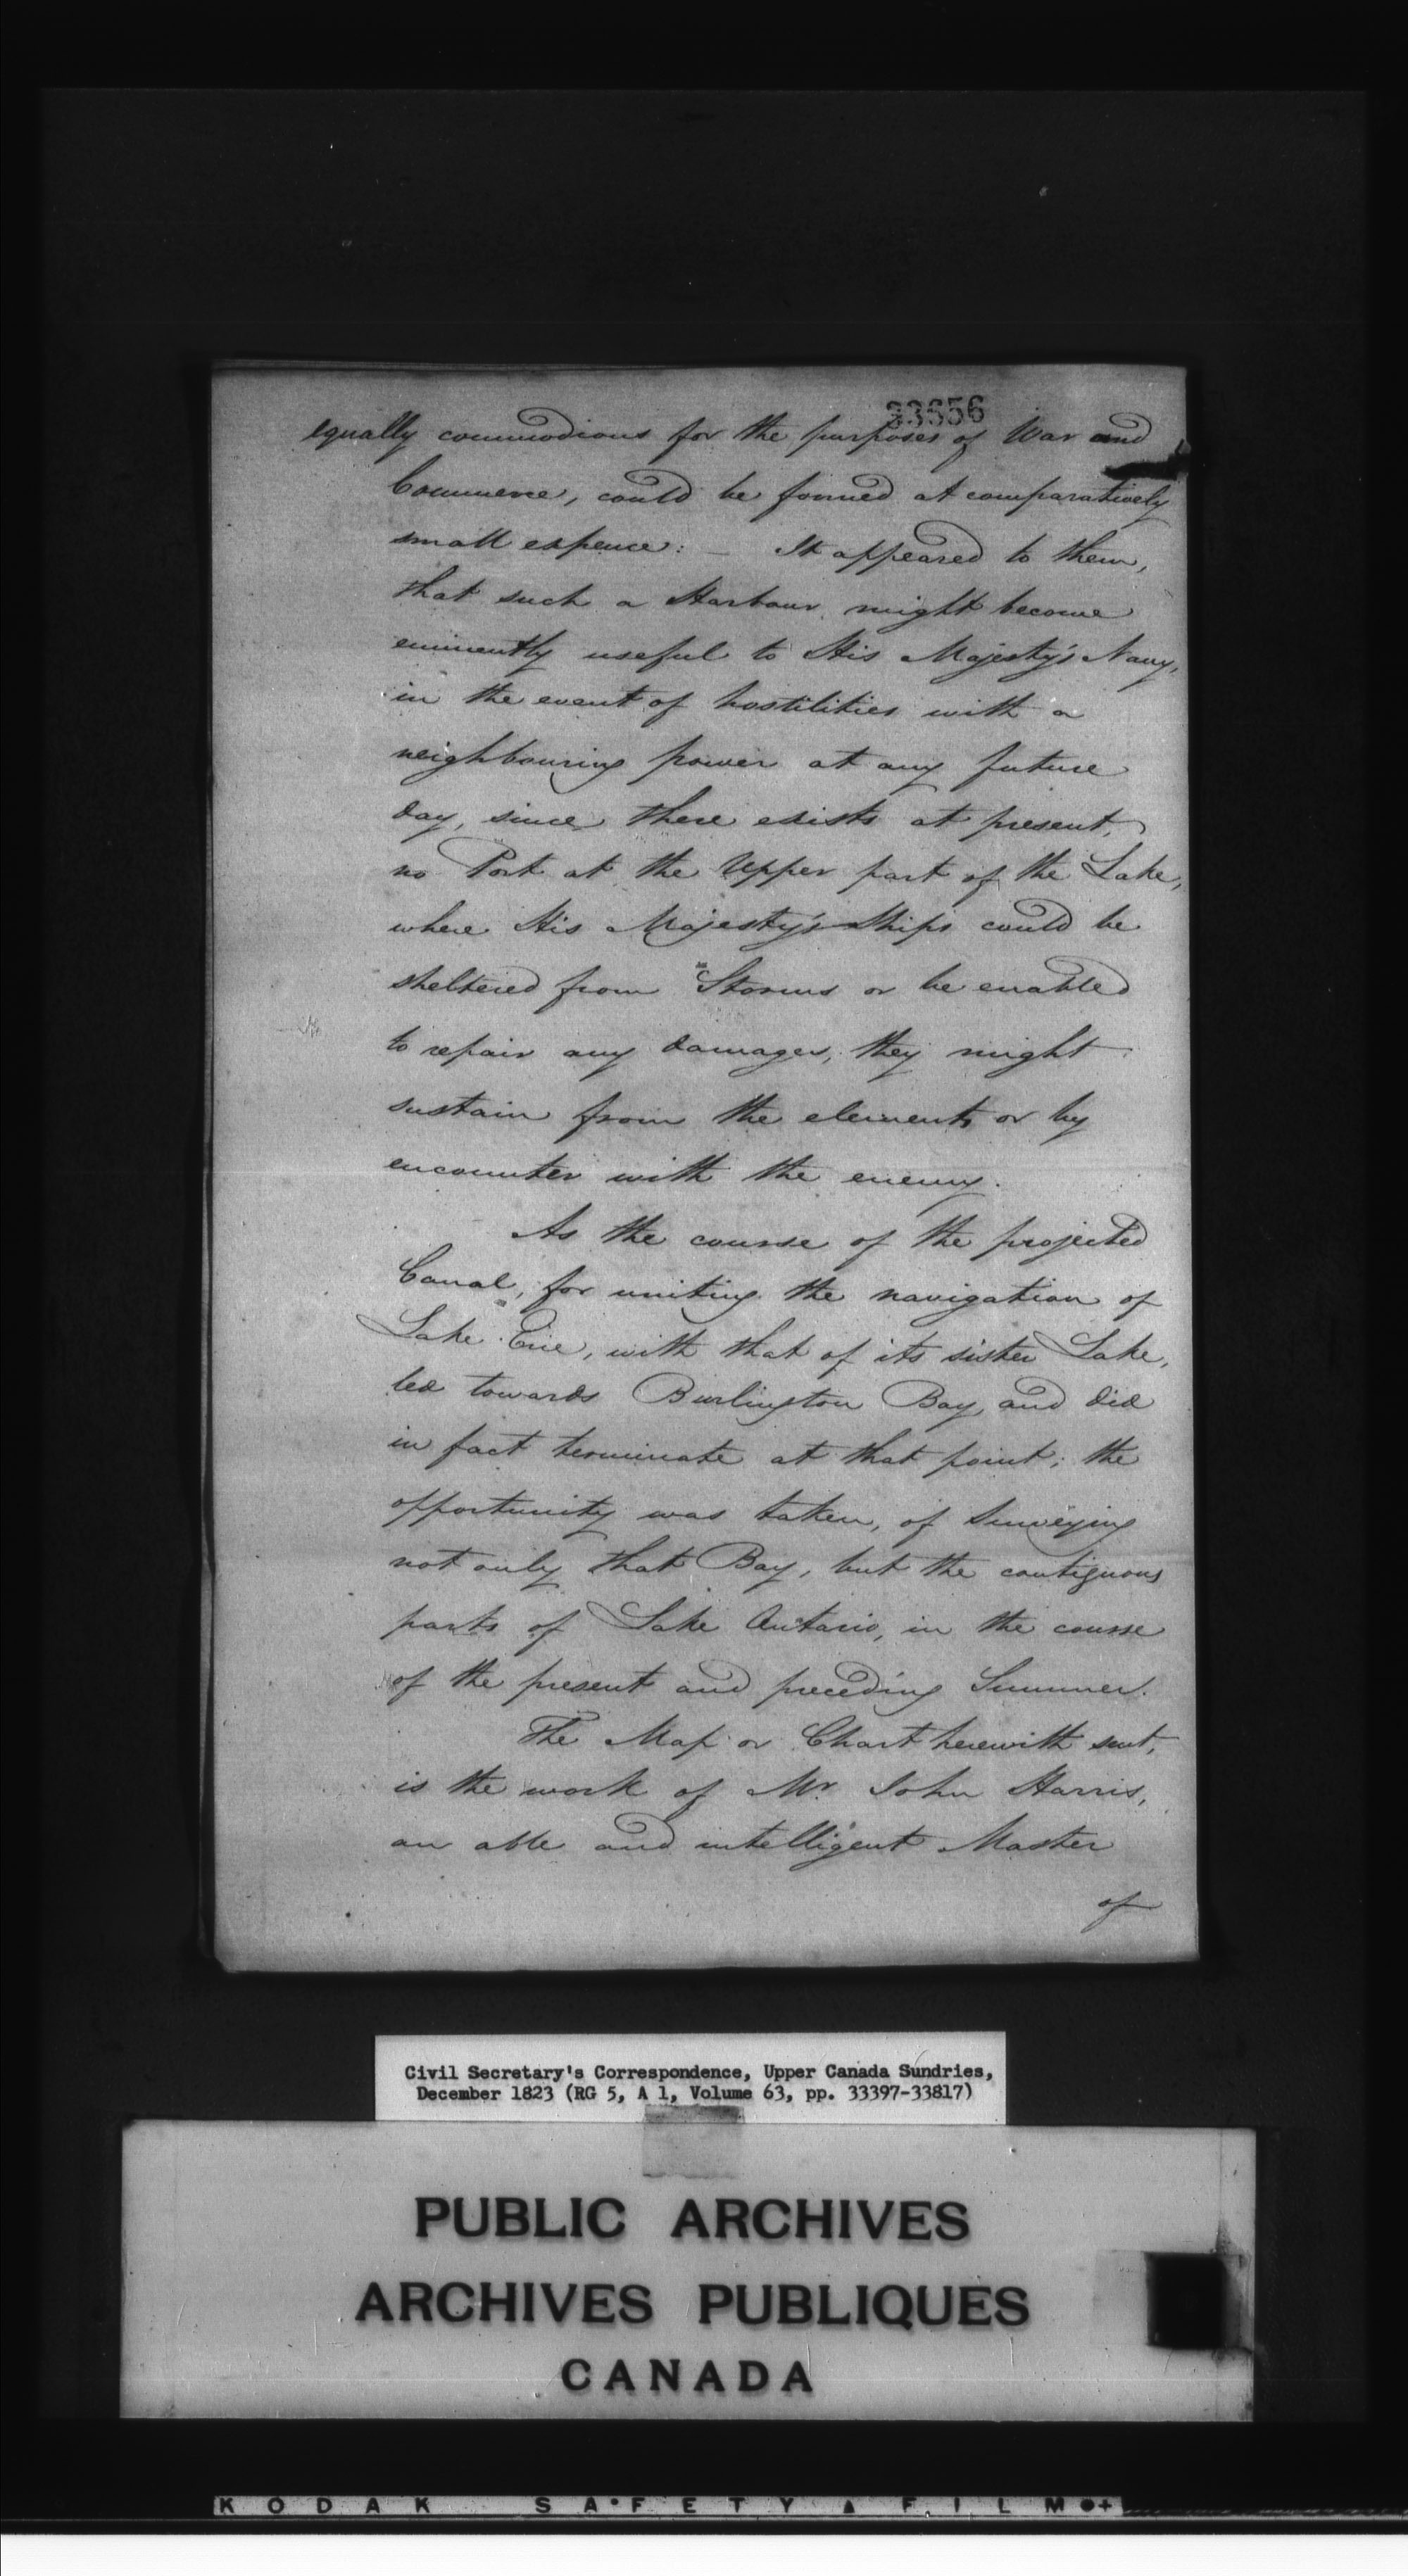 33656
equally commodious for the purposes of War and
Commerce, could be formed at comparatively
small expence: — It appeared to them,
that such a Harbour might become
eminently useful to His Majesty's Navy,
in the event of hostilities with a
neighbouring power at any future
day, since there exists at present,
no Port at the Upper part of the Lake,
where His Majesty's Ships could be
sheltered from Storms or be enabled
to repair any damages, they might
sustain from the elements or by
encounter with the enemy.
As the course of the projected
Canal, for uniting the navigation of
Lake Erie, with that of its sister Lake,
led towards Burlington Bay, and did
in fact terminate at that point; the
opportunity was taken, of Surveying
not only that Bay, but the contiguous
parts of Lake Ontario, in the course
of the present and preceding Summer.
The Map or Chart herewith sent,
is the work of Mr. John Harris,
an able and intelligent Master
of
Civil Secretary's Correspondence, Upper Canada Sundries,
December 1823 (RG 5, A 1, Volume 63, pp. 33397-33817)
PUBLIC ARCHIVES
ARCHIVES PUBLIQUES
CANADA
KODAK SAFETY FILM